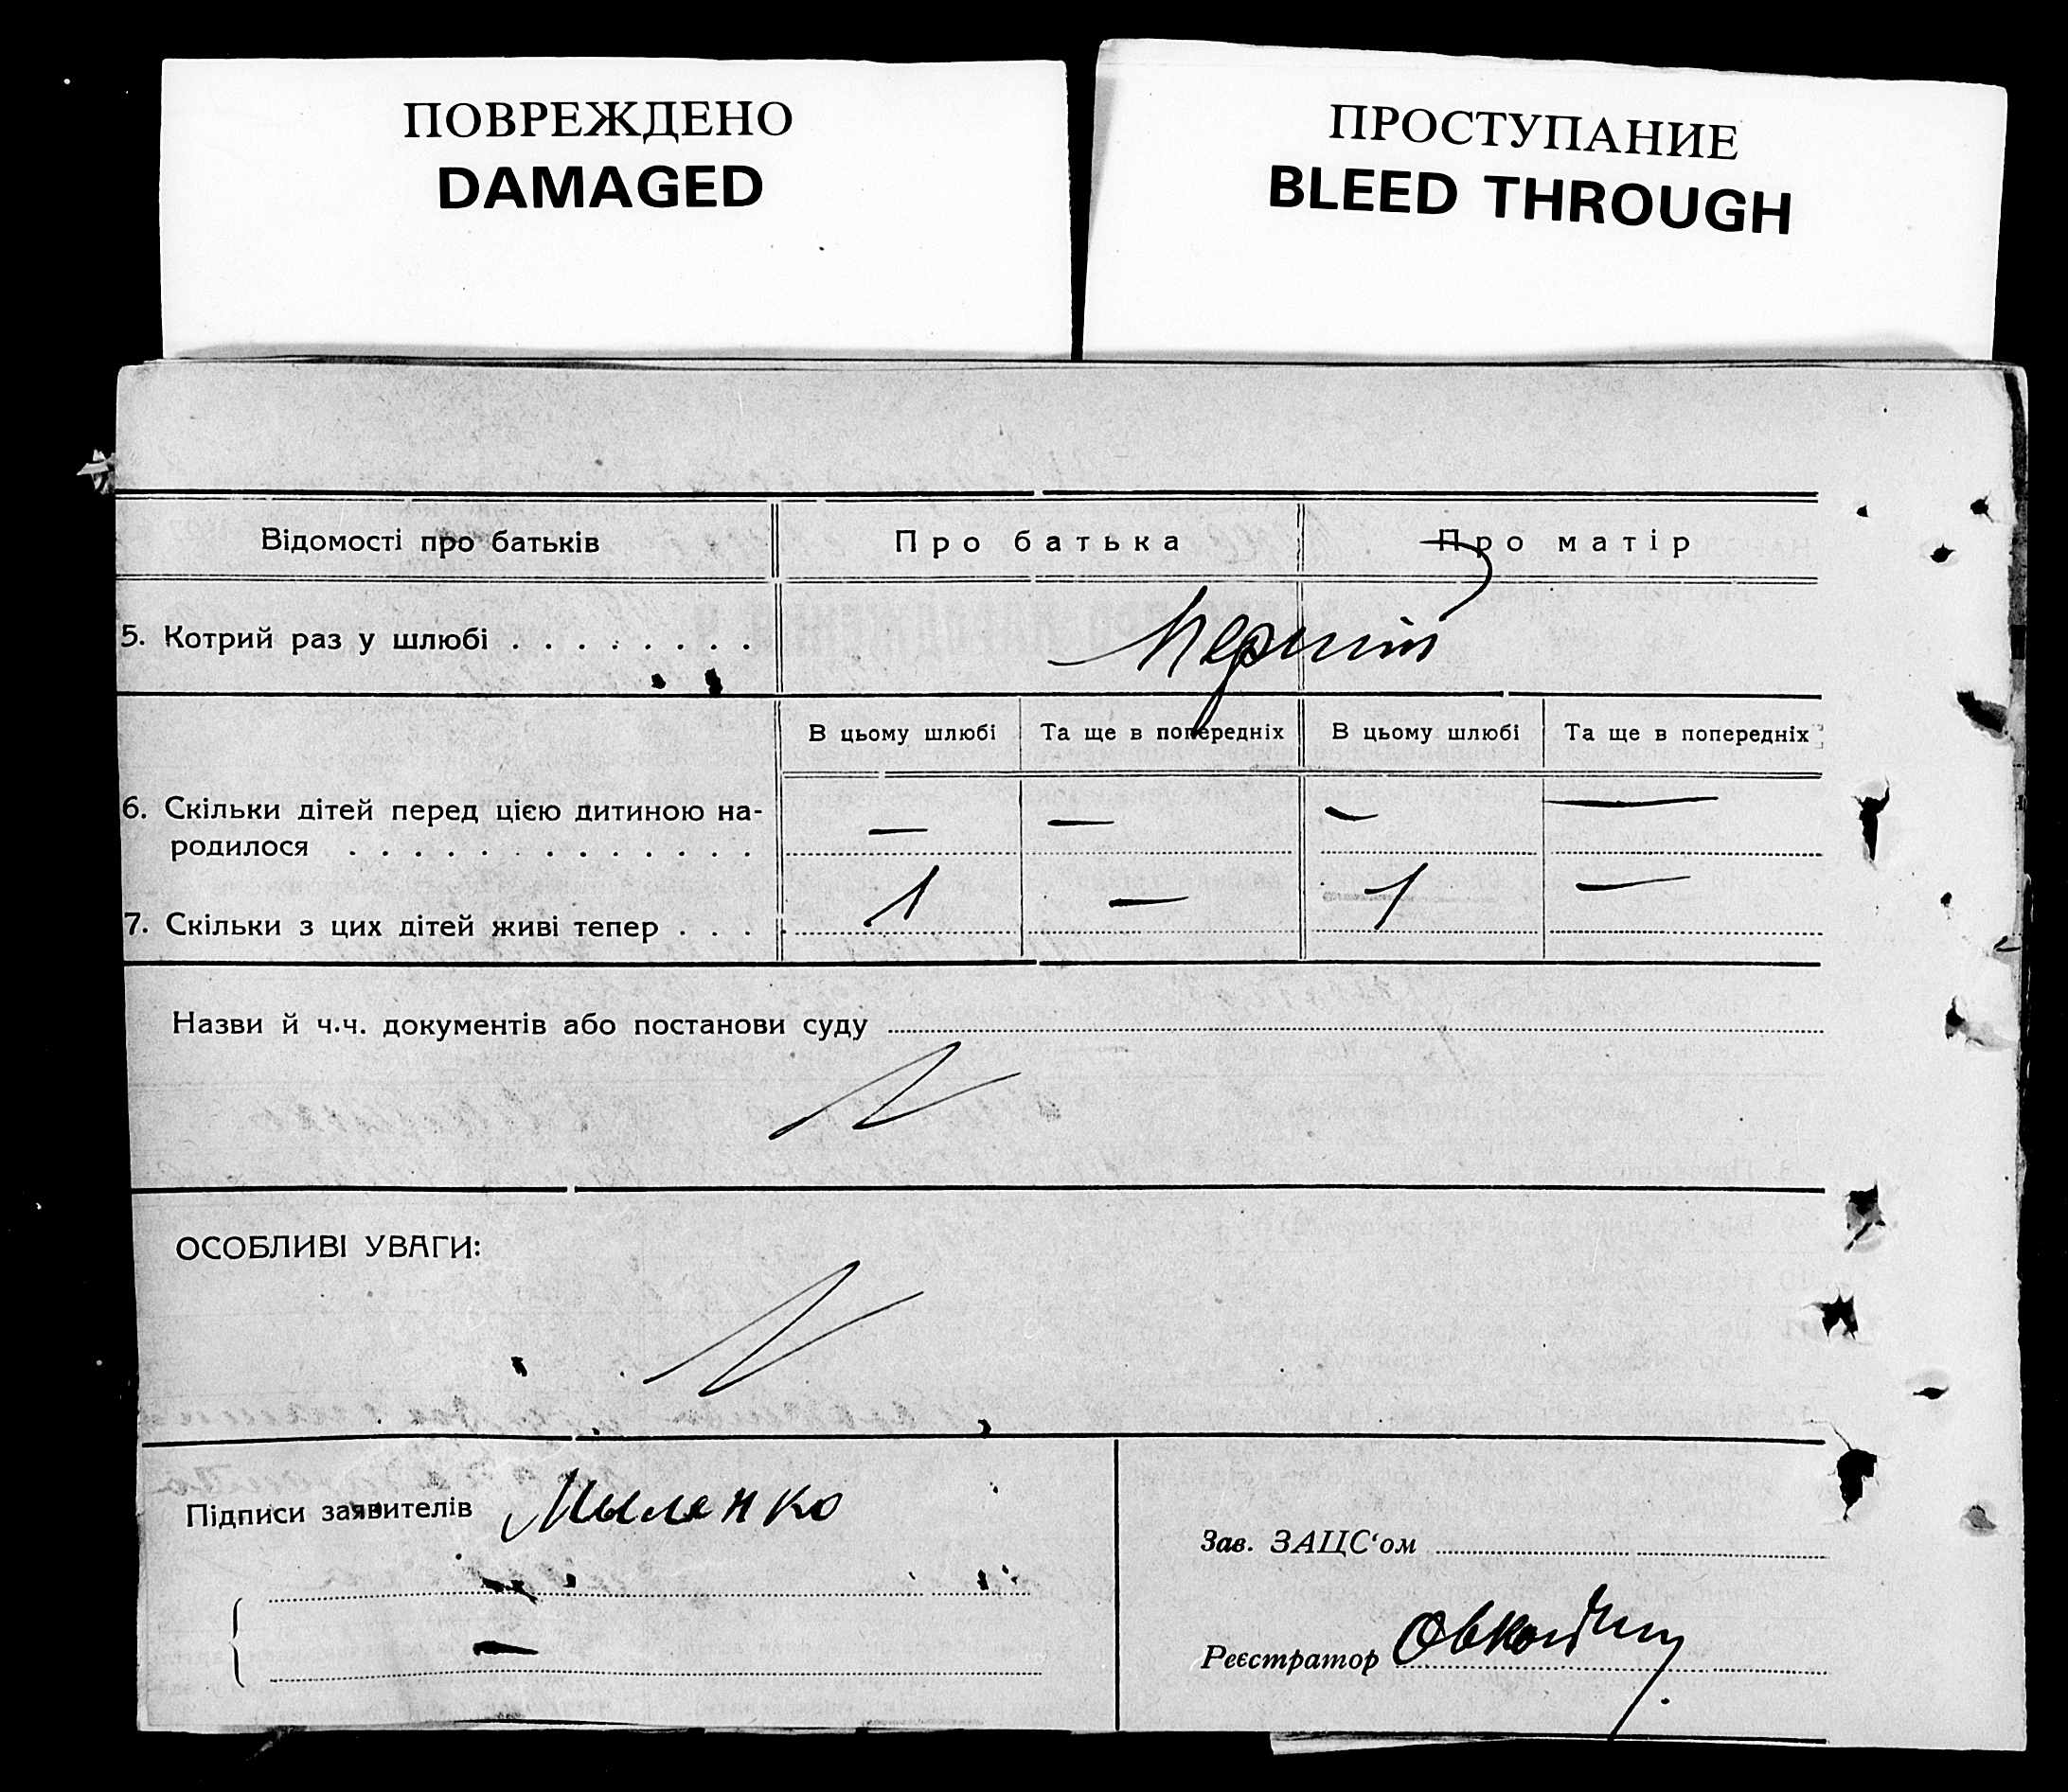 ПОВРЕЖДЕНО
DAMAGED
ПРОСТУПАНИЕ
BLEED THROUGH
Відомості про батьків Про батька Про матір
5. Котрий раз у шлюбі . . . . . . . . Перший
В цьому шлюбі Та ще в попередніх В цьому шлюбі Та ще в попередніх
6. Скільки дітей перед цією дитиною на-
родилося . . . . . . . . . . . . . — — — —
7. Скільки з цих дітей живі тепер . . . . 1 — 1 —
Назви й ч.ч. документів або постанови суду
ОСОБЛИВІ УВАГИ:
Підписи заявителів Мыленко
Зав. ЗАЦС‘ом
—
Реєстратор